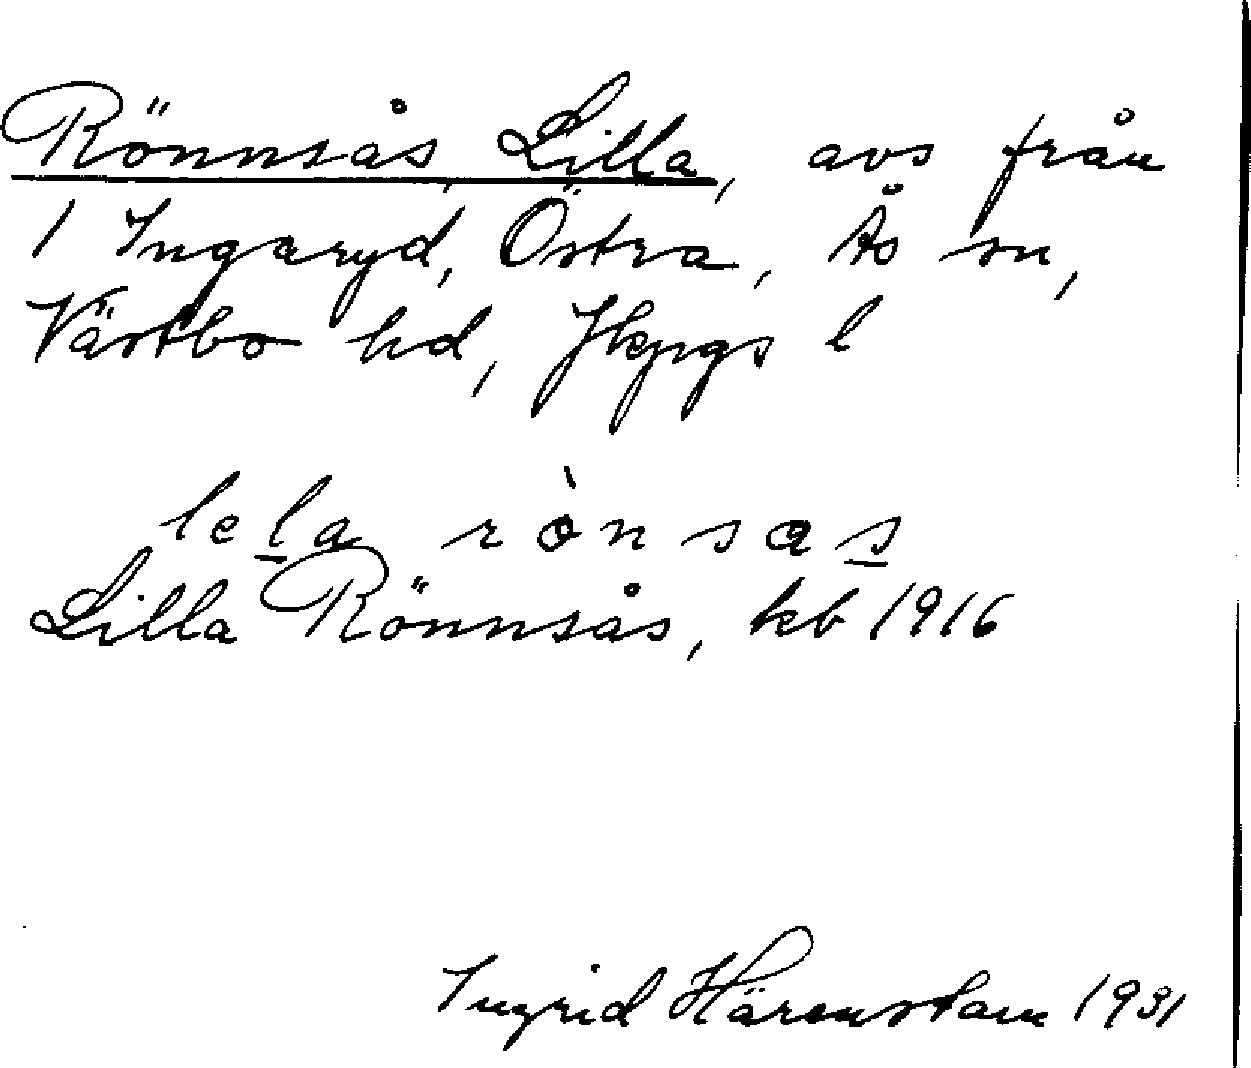 Rönnsås, Lilla, avs från
1 Ingaryd, Östra, Ås sn,
Västbo hd, Jkpgs l
lela rònsas
Lilla Rönnsås, kb 1916
Ingrid Härenstam 1931